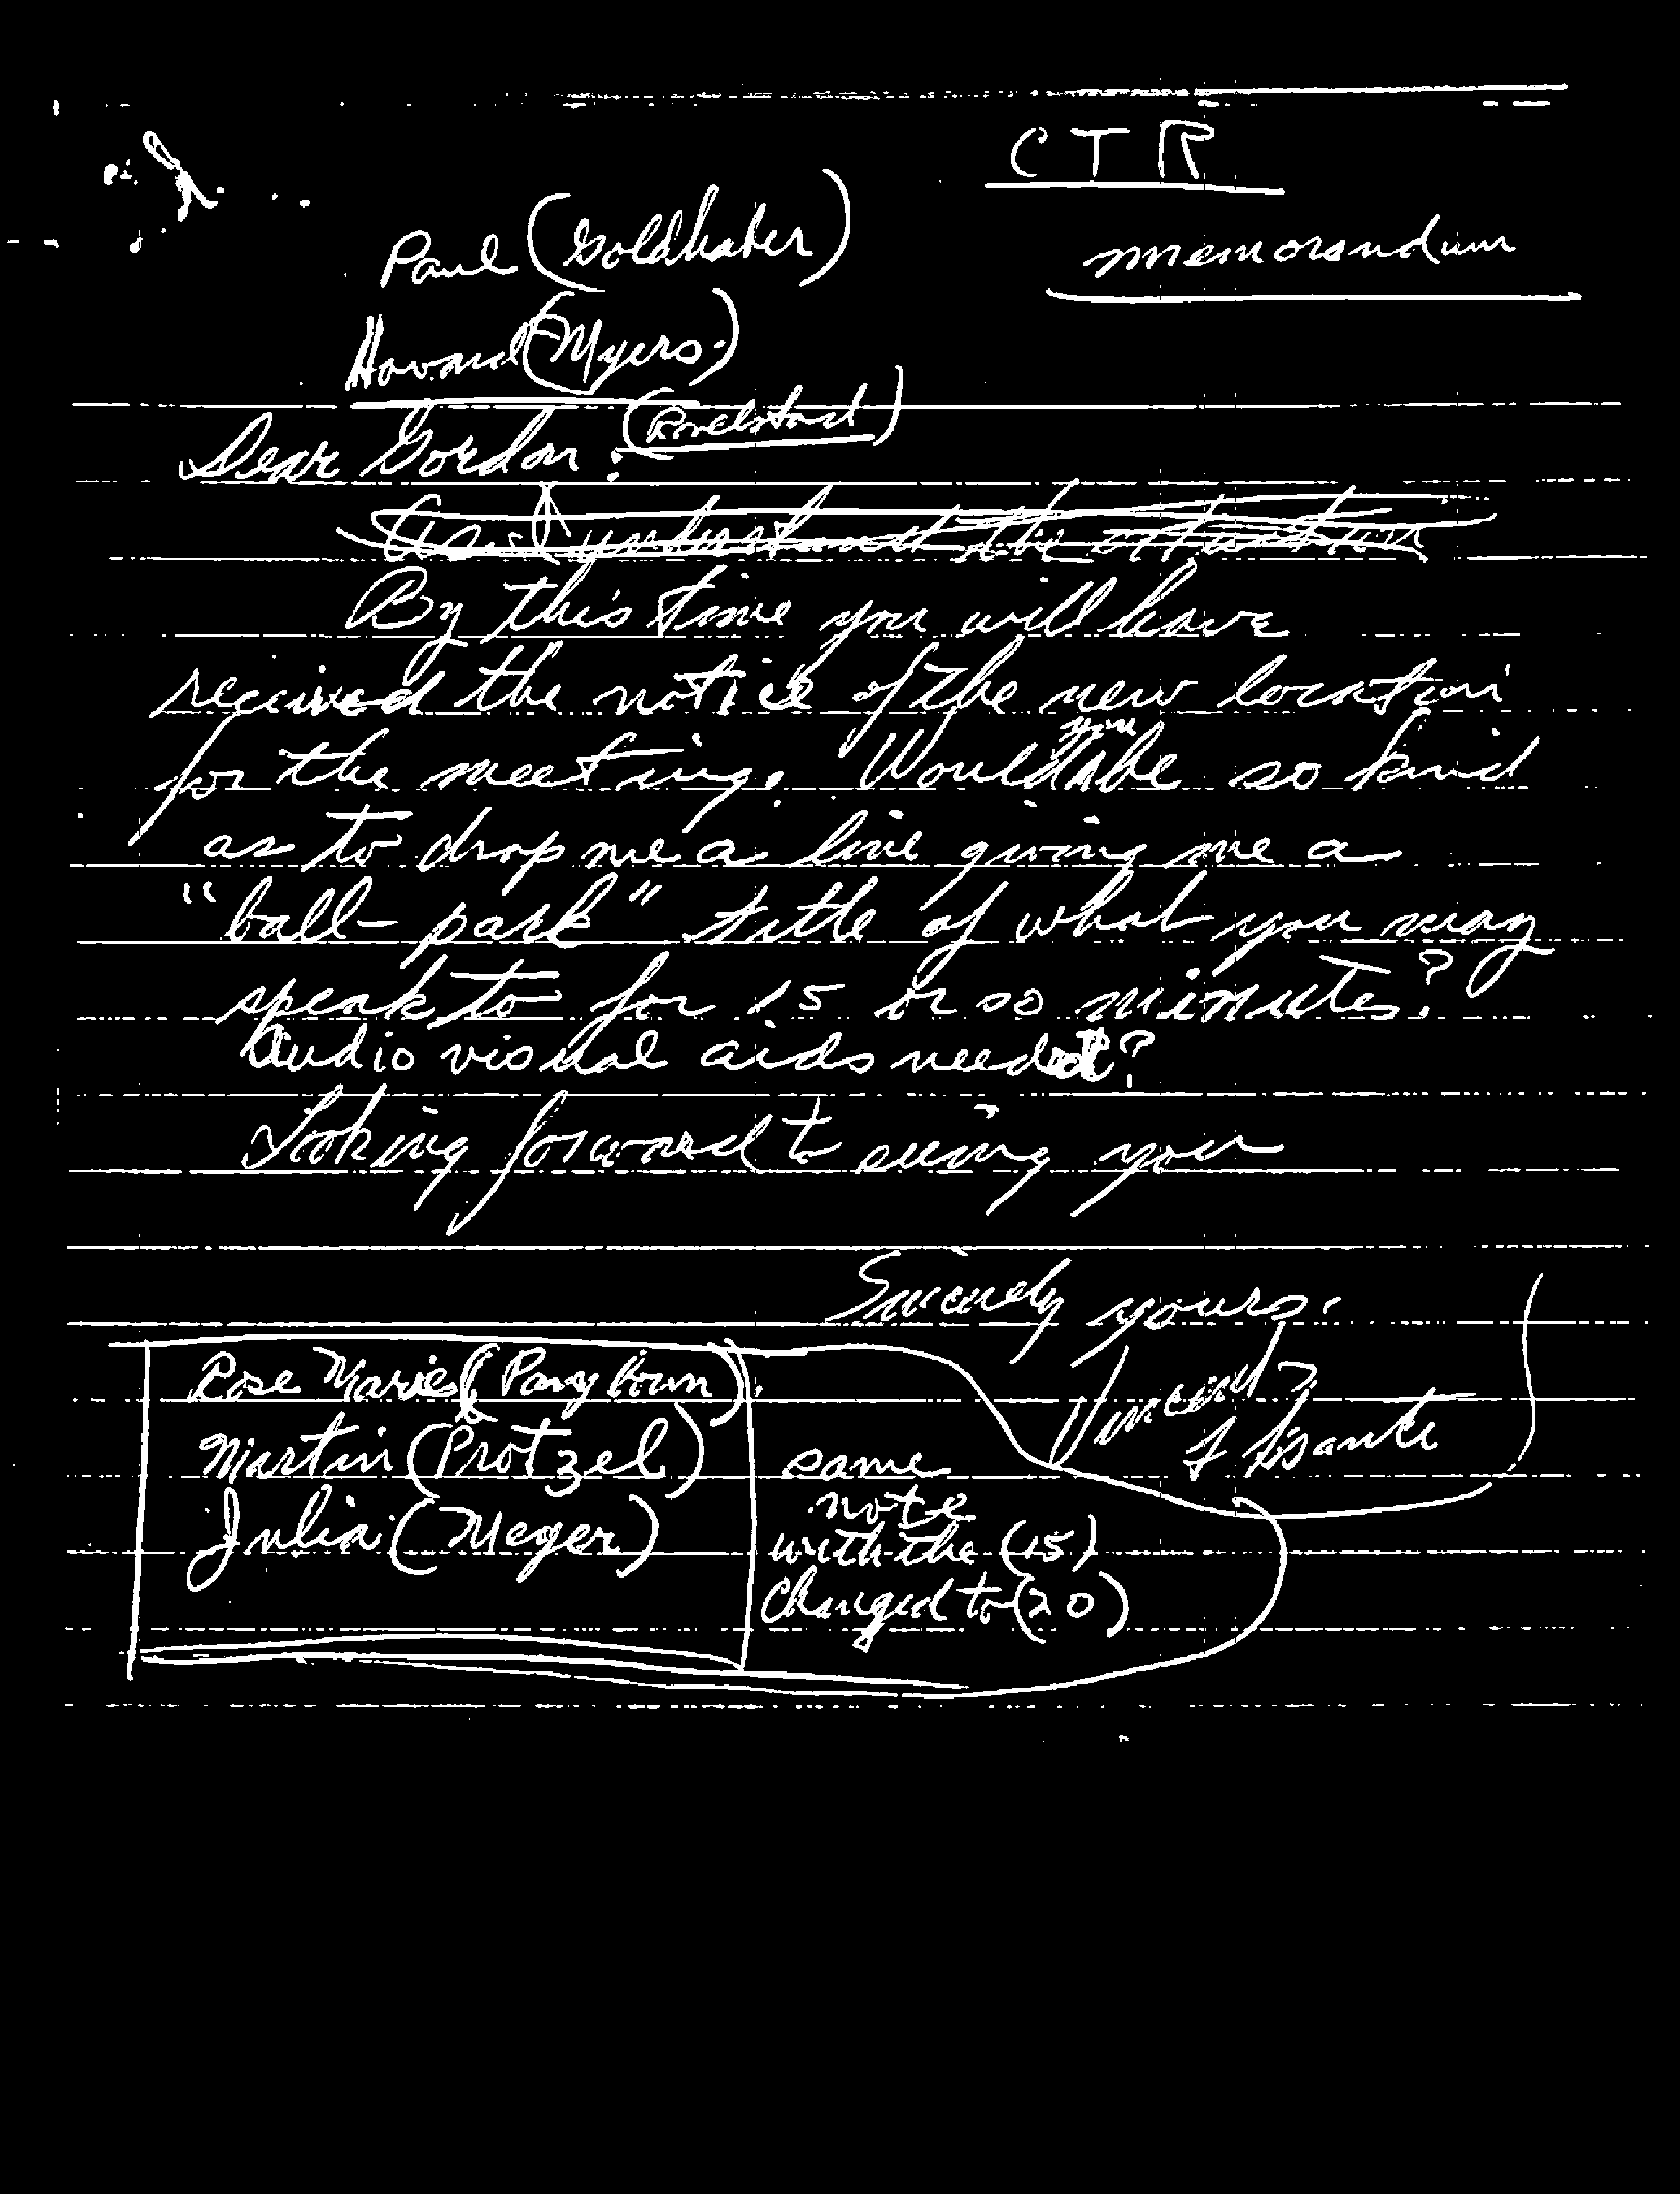 CTR
Paul (Goldhaber)
memorandum
Howard (Myers)
Dear Gordon: (Rovelstad)
By this time you will have
received the notice of the new location
for the meeting. Would you be so kind
as to drop me a line giving me a
"ball-park" title of what you may
speak to for 15 or so minutes?
Audio visual aids needed?
Looking forward to seeing you
Sincerely yours,
Vincent
Rose Marie (Pangborn).
Martin (Protzel)
Julia (Meyer)
same
note
with the (15)
changed to (20)